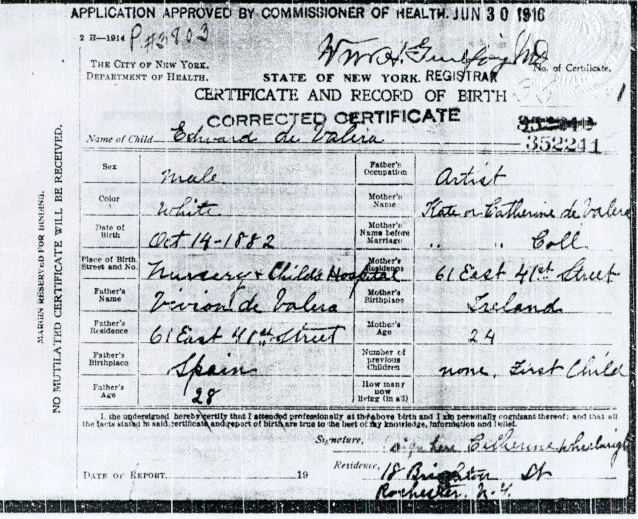 APPLICATION APPROVED BY COMMISSIONER OF HEALTH. JUN 30 1916
2 H—1914 P#3803
THE CITY OF NEW YORK.
DEPARTMENT OF HEALTH.
No. of Certificate.
STATE OF NEW YORK. REGISTRAR
CERTIFICATE AND RECORD OF BIRTH
CORRECTED CERTIFICATE
352241
Name of Child Edward de Valera
Sex Male
Father's Occupation Artist
Color White
Mother's Name Kate or Catherine de Valera
Date of Birth Oct 14-1882
Mother's Name before Marriage " " Coll
Place of Birth Street and No. Nursery & Child's Hospital
Mother's Residence 61 East 41st Street
Father's Name Vivion de Valera
Mother's Birthplace Ireland
Father's Residence 61 East 41st Street
Mother's Age 24
Father's Birthplace Spain
Number of previous Children none. First Child
Father's Age 28
How many now living (in all)
I, the undersigned hereby certify that I attended professionally at the above birth and I am personally cognizant thereof; and that all
the facts stated in said certificate and report of birth are true to the best of my knowledge, information and belief.
Signature, Catherine Wheelwright
Residence, 18 Brighton St
Rochester. N.Y.
DATE OF REPORT. 19
MARGIN RESERVED FOR BINDING.
NO MUTILATED CERTIFICATE WILL BE RECEIVED.